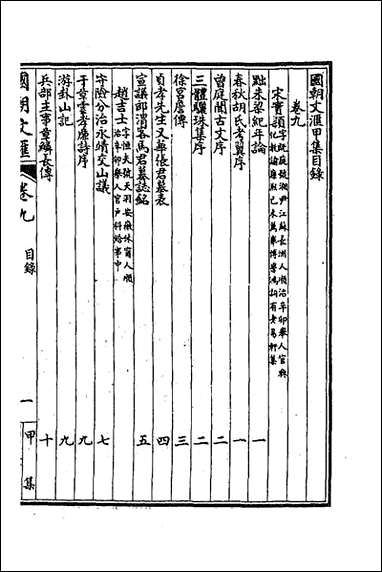 國朝文滙甲集目錄
卷九
宋實穎 字既庭號湘尹江蘇長洲人順治辛卯舉人官興化教諭康熙己未薦舉博學鴻詞有老易軒集
黜朱梁紀年論 一
春秋胡氏考翼序 一
曾庭聞古文序 二
三體驪珠集序 二
徐宮詹傳 三
貞孝先生又華張君墓表 四
宣議郎渭名馬君墓誌銘 五
趙吉士 字恒夫號天羽安徽休甯人順治辛卯舉人官戶科給事中
守險分治永靖交山議 七
于章雲孝廉詩序 九
游卦山記 九
兵部主事童麟長傳 十
國朝文滙 卷九 目錄 一 甲集